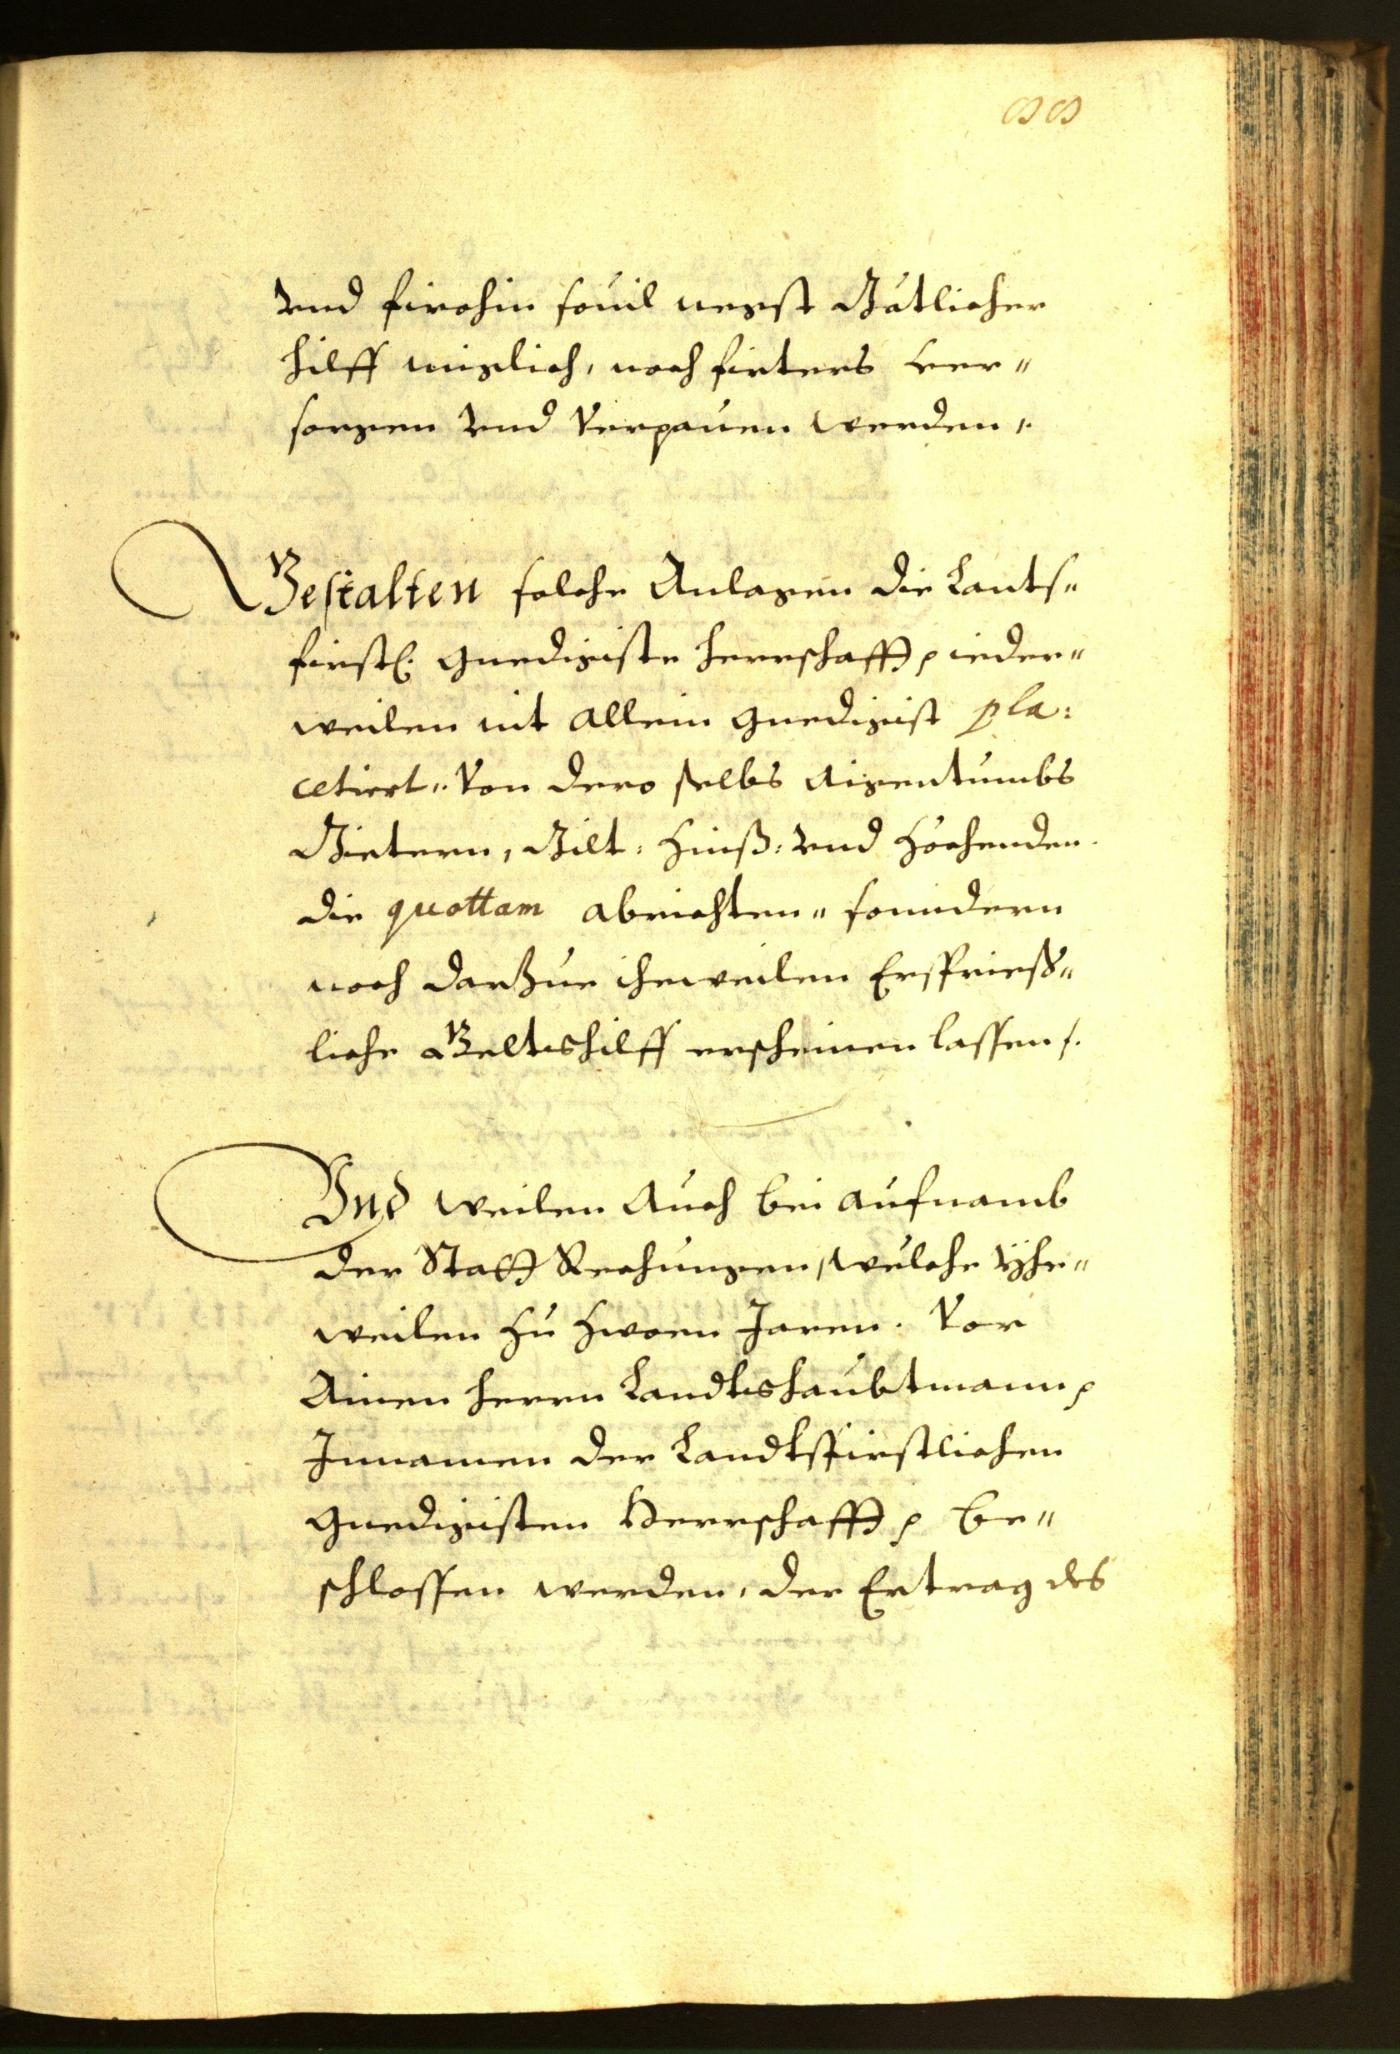 88
vnd firohin souil negst Gätlicher
hilff müglich, noch firters ver=
sorgen vnd verpauen werden,.
Gestalten solche Anlagen die Lants=
firstl: gnedigiste herrschafft ieder=
weilen nit allein gnedigist pla:
cetiert.. Von dero selbs aigentumbs
Güetern, Gilt: Zinß: vnd Zöchenden.
die quottam abrichten= sonndern
noch darzue iheweilen Ersprieß=
liche Geltshilff erscheinen lassen /.
Vnd weilen auch bei aufnamb
der Statt Rechungen, wölche yhe=
weilen zu zwoen Jaren. Vor
Ainen herrn Landtshaubtmann
Innamen der Landtsfirstlichen
gnedigisten Herrschafft be=
schlossen werden, der Ertrag des